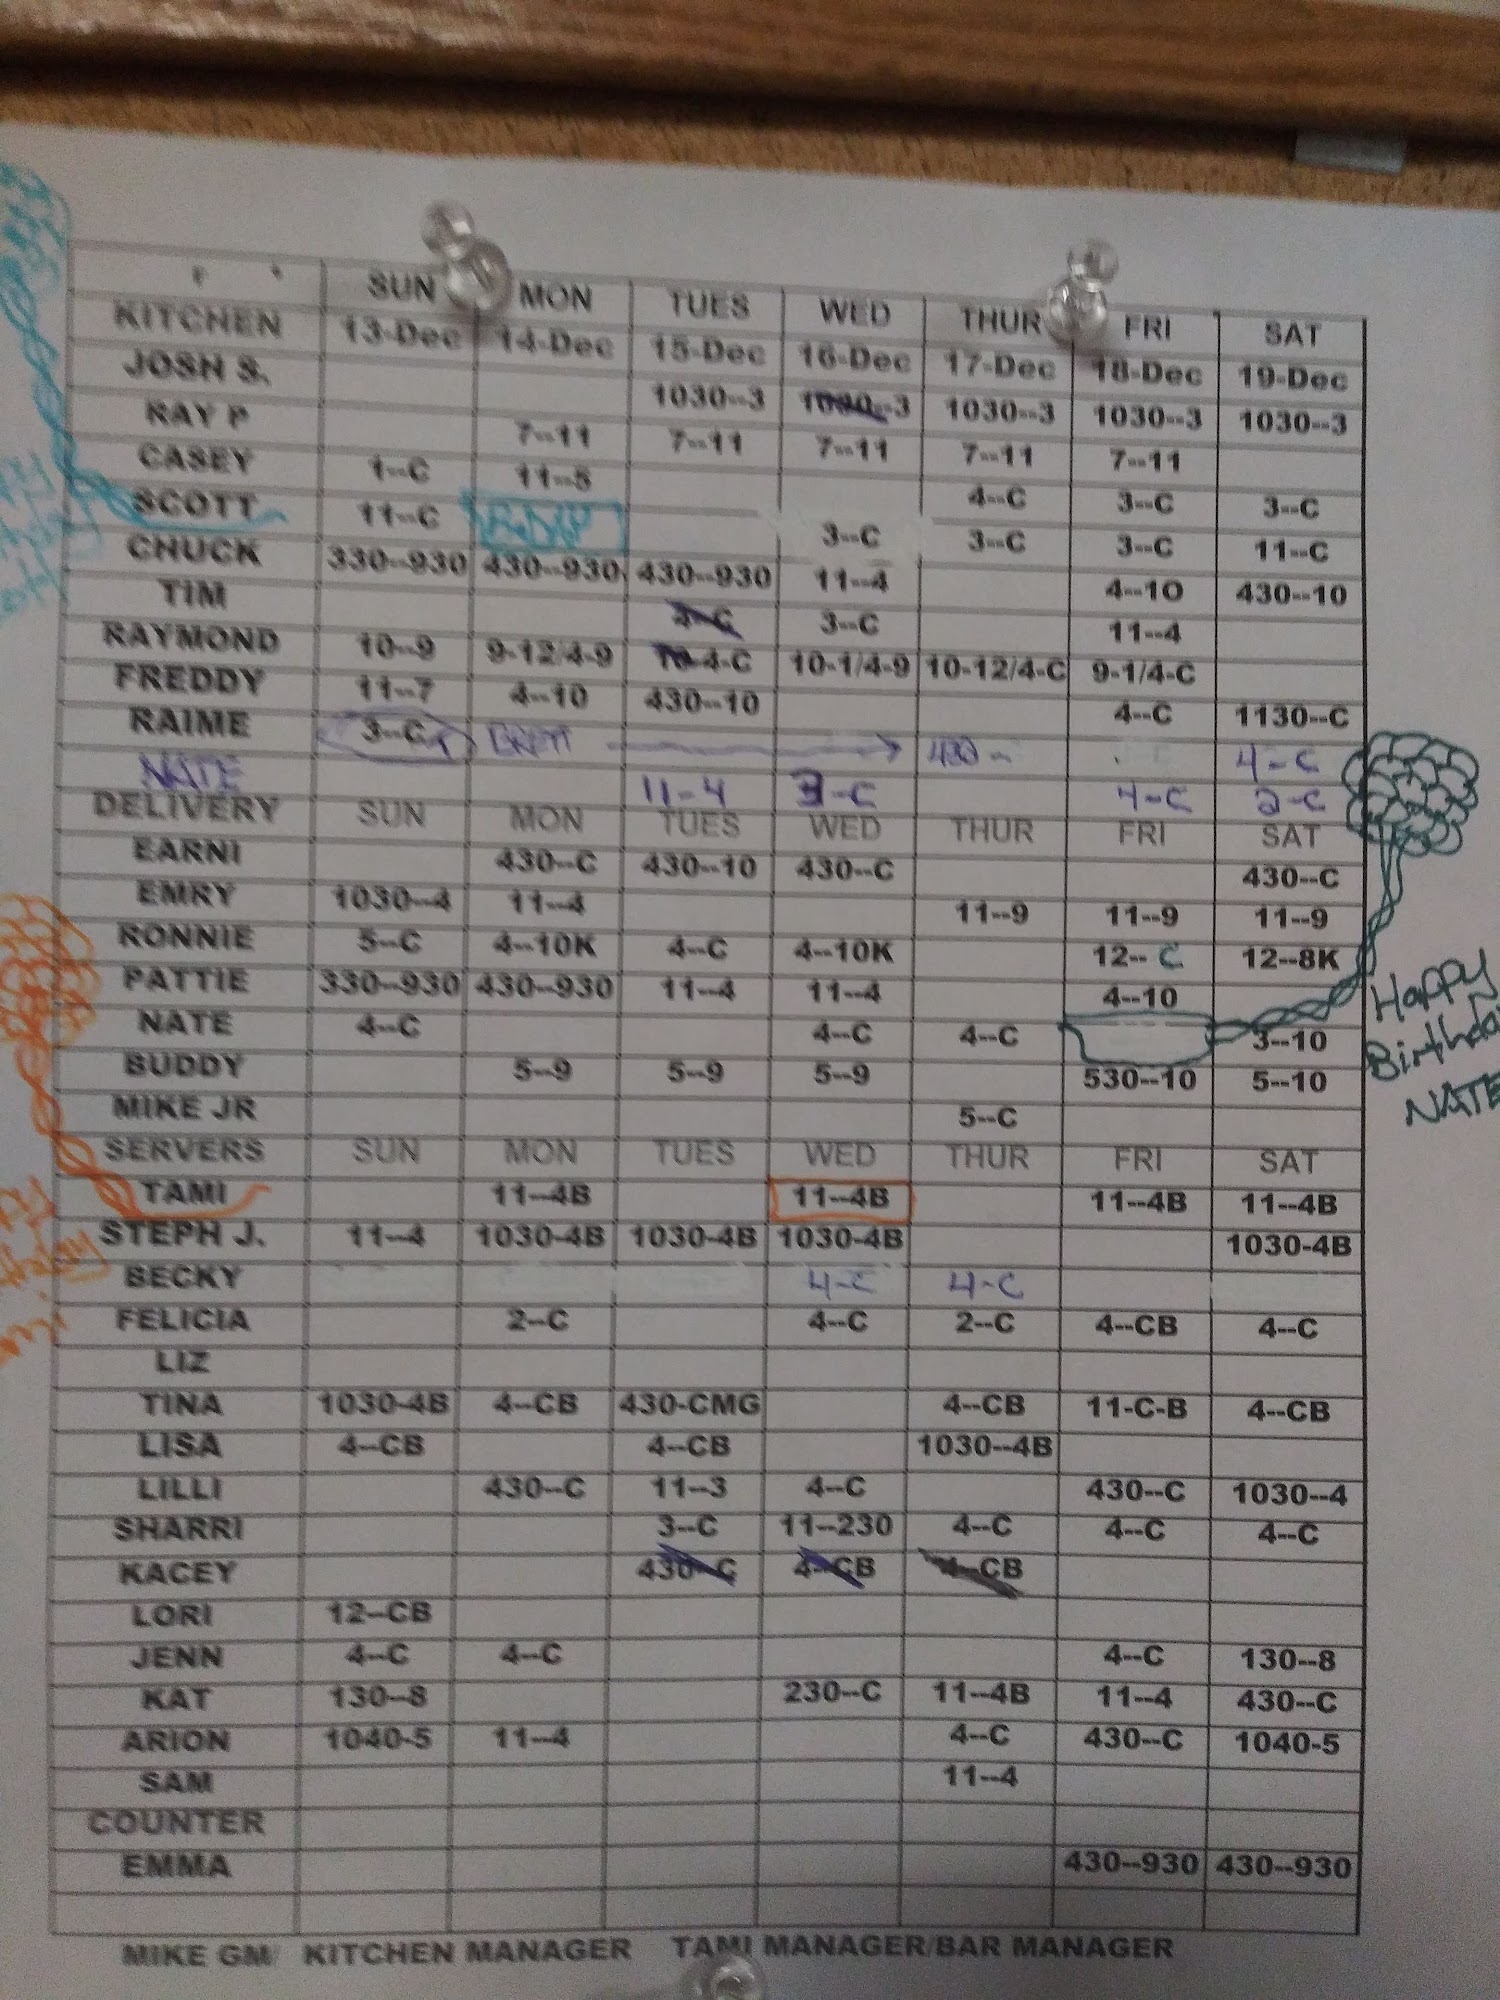 SUN MON TUES WED THUR FRI SAT
KITCHEN 13-Dec 14-Dec 15-Dec 16-Dec 17-Dec 18-Dec 19-Dec
JOSH S. 1030--3 1030--3 1030--3 1030--3 1030--3
RAY P 7--11 7--11 7--11 7--11 7--11
CASEY 1--C 11--5 4--C 3--C 3--C
SCOTT 11--C B-DAY 3--C 3--C 3--C 11--C
CHUCK 330--930 430--930 430--930 11--4 4--10 430--10
TIM 4--C 3--C 11--4
RAYMOND 10--9 9-12/4-9 10-4-C 10-1/4-9 10-12/4-C 9-1/4-C
FREDDY 11--7 4--10 430--10 4--C 1130--C
RAIME 3--C 430- 4-C
NATE 11-4 3-C 4-C 2-C
DELIVERY SUN MON TUES WED THUR FRI SAT
EARNI 430--C 430--10 430--C 430--C
EMRY 1030--4 11--4 11--9 11--9 11--9
RONNIE 5--C 4--10K 4--C 4--10K 12-- C 12--8K
PATTIE 330--930 430--930 11--4 11--4 4--10
NATE 4--C 4--C 4--C 3--10
BUDDY 5--9 5--9 5--9 530--10 5--10
MIKE JR 5--C
SERVERS SUN MON TUES WED THUR FRI SAT
TAMI 11--4B 11--4B 11--4B 11--4B
STEPH J. 11--4 1030-4B 1030-4B 1030-4B 1030-4B
BECKY 4-C 4-C
FELICIA 2--C 4--C 2--C 4--CB 4--C
LIZ
TINA 1030-4B 4--CB 430-CMG 4--CB 11-C-B 4--CB
LISA 4--CB 4--CB 1030--4B
LILLI 430--C 11--3 4--C 430--C 1030--4
SHARRI 3--C 11--230 4--C 4--C 4--C
KACEY 430--C 4--CB 4--CB
LORI 12--CB
JENN 4--C 4--C 4--C 130--8
KAT 130--8 230--C 11--4B 11--4 430--C
ARION 1040-5 11--4 4--C 430--C 1040-5
SAM 11--4
COUNTER
EMMA 430--930 430--930
MIKE GM/ KITCHEN MANAGER TAMI MANAGER/BAR MANAGER
Happy
Birthday
NATE